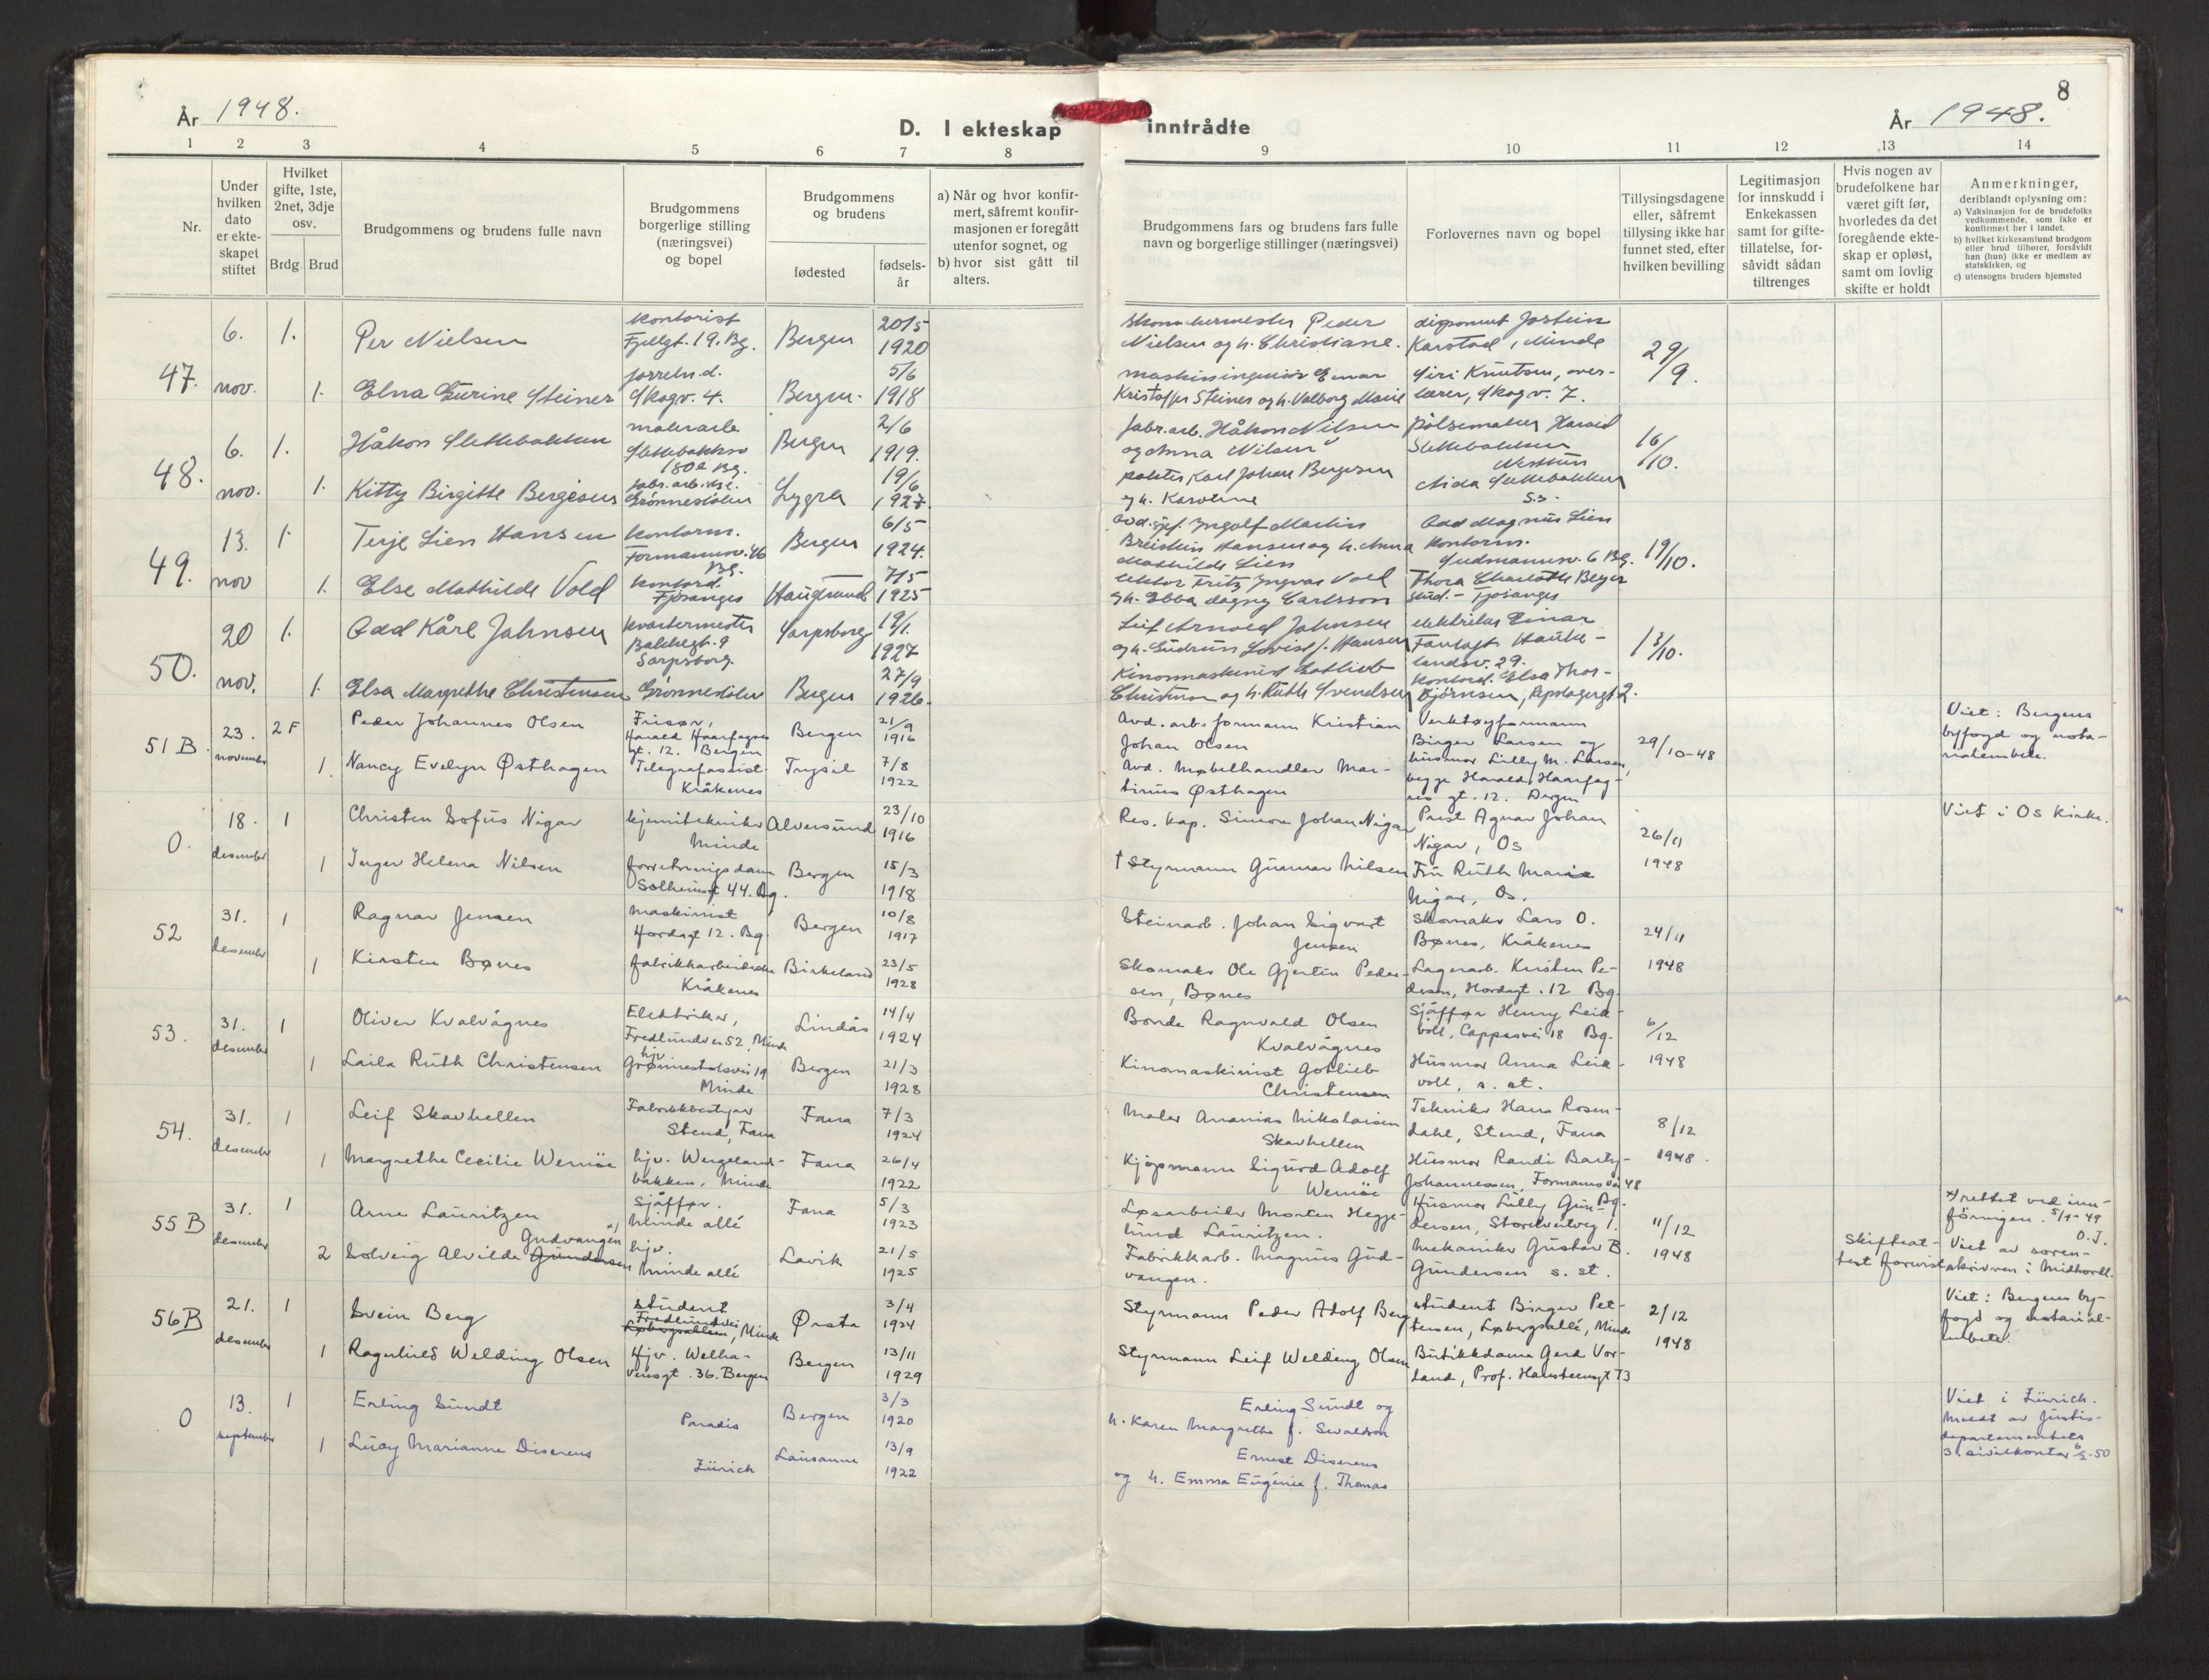 År 1948.
D. I ekteskap
inntrådte
8
År 1948.
1 2 3 4 5 6 7 8
9 10 11 12 13 14
Nr.
Under hvilken dato er ekteskapet stiftet
Hvilket gifte, 1ste, 2net, 3dje osv.
Brdg. Brud
Brudgommens og brudens fulle navn
Brudgommens borgerlige stilling (næringsvei) og bopel
Brudgommens og brudens
fødested
fødsels-år
a) Når og hvor konfirmert, såfremt konfirmasjonen er foregått utenfor sognet, og
b) hvor sist gått til alters.
Brudgommens fars og brudens fars fulle navn og borgerlige stillinger (næringsvei)
Forlovernes navn og bopel
Tillysingsdagene eller, såfremt tillysing ikke har funnet sted, efter hvilken bevilling
Legitimasjon for innskudd i Enkekassen samt for giftetillatelse, forsåvidt sådan tiltrenges
Hvis nogen av brudefolkene har været gift før, hvorledes da det foregående ekteskap er opløst, samt om lovlig skifte er holdt
Anmerkninger, deriblandt oplysning om:
a) Vaksinasjon for de brudefolks vedkommende, som ikke er konfirmert her i landet.
b) hvilket kirkesamfund brudgom eller brud tilhører, forsåvidt han (hun) ikke er medlem av statskirken, og
c) utensogns bruders hjemsted
47. 6. nov. 1. Per Nielsen kontorist Fjellgt. 19. Bg. Bergen 20/5 1920
1. Elna Eurine Steiner forretn.d. Skogv. 4. Bergen. 5/6 1918
Peder Nielsen og h. Christiane. disponent Jostein Karstad, Minde 29/9.
maskiningeniør Einar Kristoffer Steiner og h. Valborg Marie Siri Knutsen, overlærer, Skogv. 7.
48. 6. nov. 1. Håkon Slettebakken malerarb. Slettebakksv 180a Bg. Bergen 2/6 1919.
1. Kitty Birgitte Bergesen fabr.arb. Grønnestølen Lygra 19/6 1927.
fabr.arb. Håkon Nilsen og Anna Nilsen pølsemaker Harald Slettebakken Nesttun 16/10.
Karl Johan Bergesen og h. Karoline Aida Slettebakken s.s.
49. 13. nov 1. Terje Lien Hansen kontorm. Formannsv. 46 Bg. Bergen 6/5 1924.
1. Else Mathilde Vold kontord. Fjøsanger Haugesund 7/5 1925
avd.sjef Ingolf Martin Breistein Hansen og h. Anna Mathilde Lien Odd Magnus Lien kontorm. 6 Bg. 19/10.
lektor Fritz Ingvar Vold og h. Ebba Dagny Carlsson Thora Charlotte Beyer stud. - Fjøsanger
50. 20 nov. 1. Odd Kåre Jahnsen kvartermester Bakkegt. 9 Sarpsborg. Sarpsborg 19/1. 1927
1. Elsa Margrethe Christensen Grønnestølen Bergen 27/9 1926.
Leif Arnold Jahnsen og h. Gudrun Lovise f. Hansen elektriker Einar Fantoft Haukelandsv. 29. 13/10.
Kinomaskinist Gotlieb Christensen og h. Ruth Svendsen kontord. Elsa Thorbjørnsen, Apotagergt 2.
51 B. 23. november 2 F Peder Johannes Olsen Frisør, Harald Haarfagres gt. 12. Bergen Bergen 21/9 1916
1. Nancy Evelyn Østhagen Telegrafassist. Kråkenes Trysil 7/8 1922
Avd. arb. formann Kristian Johan Olsen Verktøyformann Birger Larsen og husmor Lilly M. Larsen, begge Harald Haarfagres gt. 12. Bergen 29/10-48
Avd. Møbelhandler Martinius Østhagen
Viet: Bergens byfogd og notarialembete.
0. 18. desember 1 Christen Sofus Nigar kjemitekniker Minde Alversund 23/10 1916
1 Inger Helena Nilsen forretningsdame Solheimsgt 44. Bg. Bergen 15/3 1918
Res. kap. Simon Johan Nigar Prest Agnar Johan Nigar, Os 26/11 1948
† Styrmann Gunnar Nilsen Fru Ruth Marie Nigar, Os.
Viet i Os Kirke.
52 31. desember 1 Ragnar Jensen Maskinist Hordagt 12. Bg. Bergen 10/8 1917
1 Kirsten Bønes fabrikkarbeiderske Kråkenes Birkeland 23/5 1928
Steinarb. Johan Sigvart Jensen Skomaker Lars O. Bønes, Kråkenes 24/11 1948
Skomaker Ole Gjertin Pedersen, Bønes Lagerarb. Kristen Pedersen, Hordagt. 12 Bg.
53. 31. desember 1 Oliver Kvalvågnes Elektriker, Fredlundvei 52, Minde Lindås 14/4 1924
1 Laila Ruth Christensen hjv. Grønnestølsvei 19 Minde Bergen 21/3 1928
Bonde Ragnvald Olsen Kvalvågnes Sjåffør Henry Leikvoll, Cappesvei 18 Bg. 6/12 1948
Kinomaskinist Gotlieb Christensen Husmor Anna Leikvoll, s. st.
54. 31. desember 1 Leif Skavhellen Fabrikkbestyrer Stend, Fana Fana 7/3 1924
1 Margrethe Cecilie Wernöe hjv. Wergelandbakken. Minde Fana 26/4 1922
Maler Ananias Nikolaisen Skavhellen Tekniker Hans Rosendahl, Stend, Fana 8/12 1948.
Kjøpmann Sigurd Adolf Wernöe Husmor Randi Johannessen, Formannsvei 48 Bg.
55 B 31. desember 1 Arne Lauritzen Sjåffør. Minde allé Fana 5/3 1923
2 Solveig Alvilde Gundersen Gudvangen x) hjv. Minde allé Lavik 21/5 1925
Løsarbeider Morten Heggelund Lauritzen. Husmor Lilly Gundersen, Storetveitveg 1. 11/12 1948
Fabrikkarb. Magnus Gudvangen. Mekaniker Gustav B. Gundersen s. st.
Skifteattest forevist
x) rettet ved innføringen. 5/1-49 O.J.
Viet av sorenskriveren i Midhordl.
56 B 21. desember 1 Svein Berg student Fredlundvei Løbergsalleen, Minde Ørsta 3/4 1924
1 Ragnhild Welding Olsen Hjv. Welhavensgt. 36. Bergen Bergen 13/11 1929
Styrmann Peder Adolf Berg student Birger Pettersen, Løbergsallé, Minde 2/12 1948
Styrmann Leif Welding Olsen Butikkdame Gerd Vorland, Prof. Hansteensgt 73
Viet: Bergens byfogd og notarialembete.
0 13. september 1 Erling Sundt Paradis Bergen 3/3 1920
1 Lucy Marianne Diserens Zürich Lausanne 13/9 1922
Erling Sundt og h. Karen Margrethe f. Sevaldson
Ernest Diserens og h. Emma Eugénie f. Thomas
Viet i Zürich. Meldt av Justisdepartementets 3. sivilkontor 6/2-50